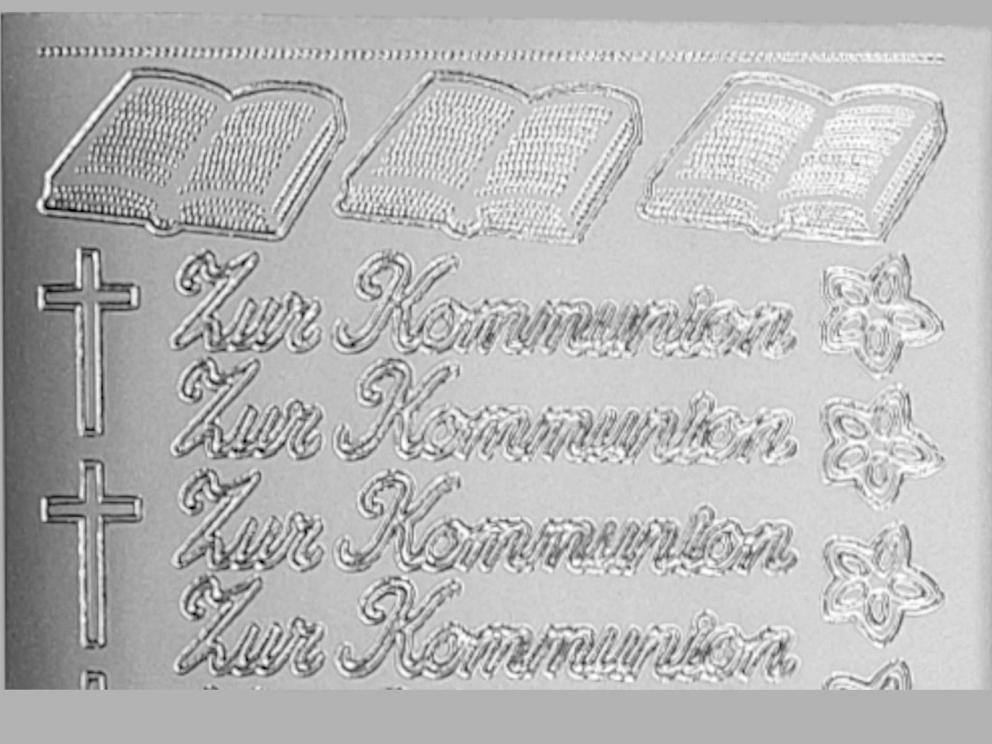 Zur Kommunion
Zur Kommunion
Zur Kommunion
Zur Kommunion